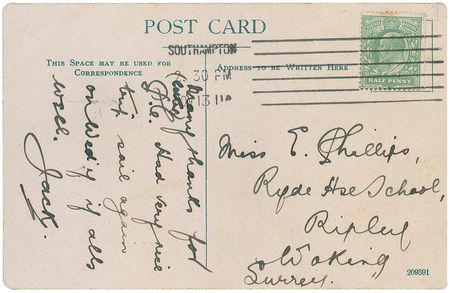 POST CARD
THIS SPACE MAY BE USED FOR
CORRESPONDENCE
ADDRESS TO BE WRITTEN HERE
SOUTHAMPTON
30 PM
13 11
HALF PENNY
Many thanks for
P.C. Had very nice
trip sail again
on Wed'y if all's
well.
Jack.
Miss E. Phillips,
Ryde Hse School,
Ripley
Woking
Surrey.
209591